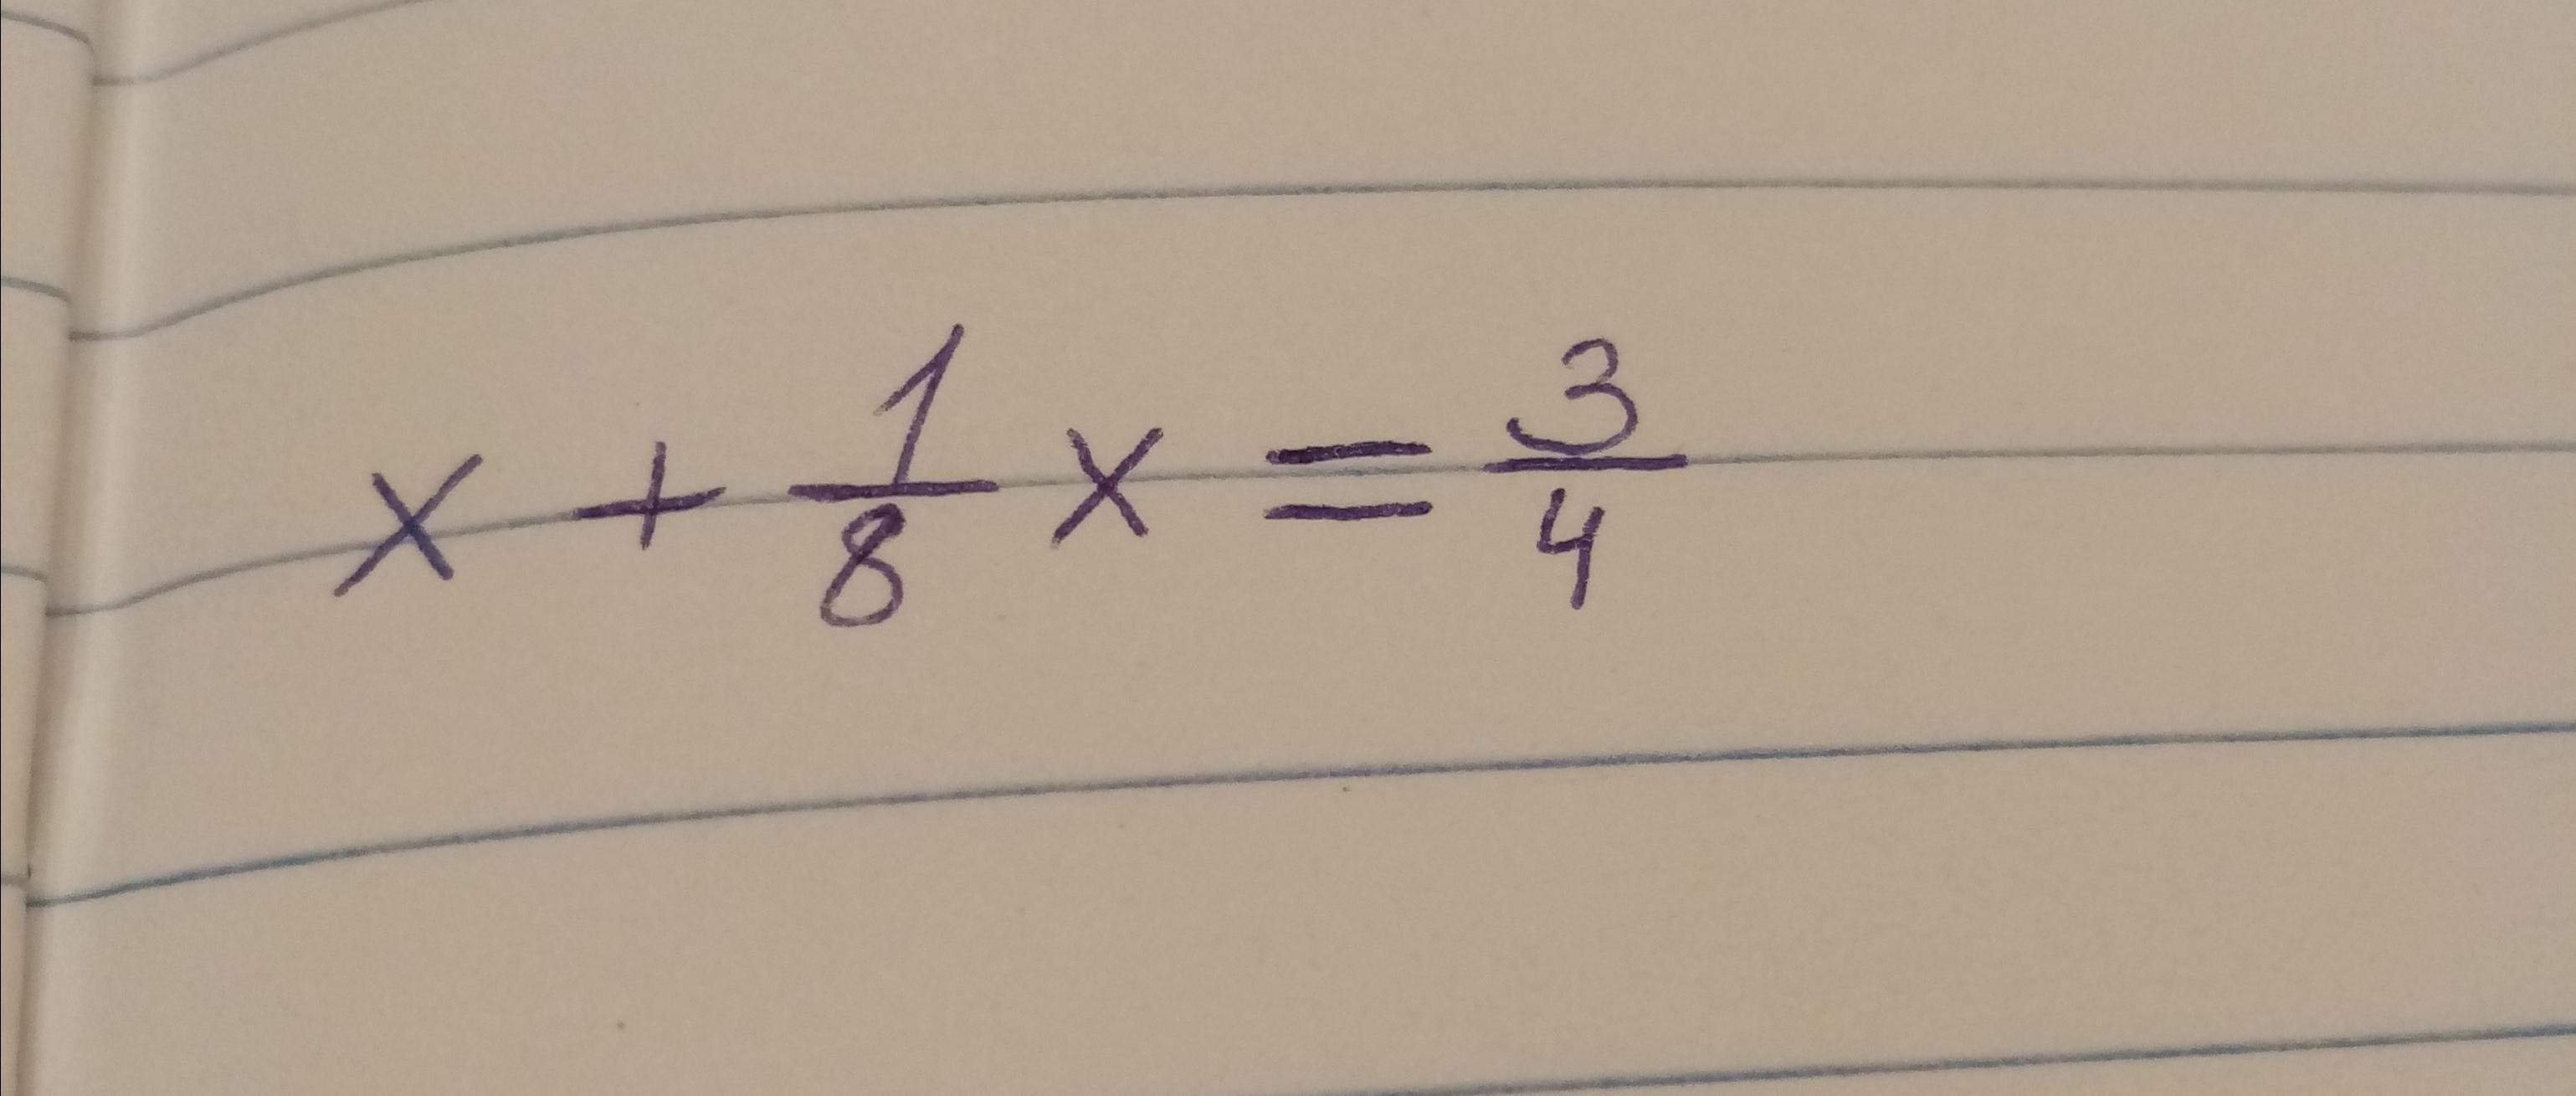 x + 1/8 x = 3/4